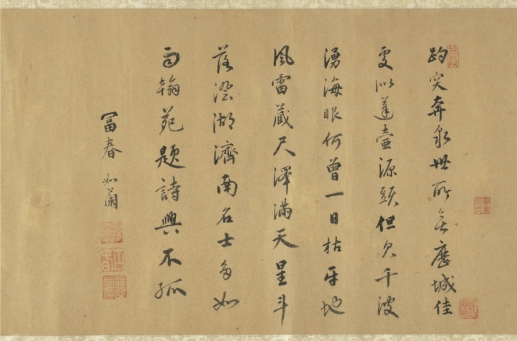 趵突奔泉世所無歷城佳
處似蓬壺源頭但千波
湧海眼何曾一日枯平地
風雷藏尺澤滿天星斗
落澄湖濟南名士多如
雨翰苑題詩興不孤
冨春如蘭